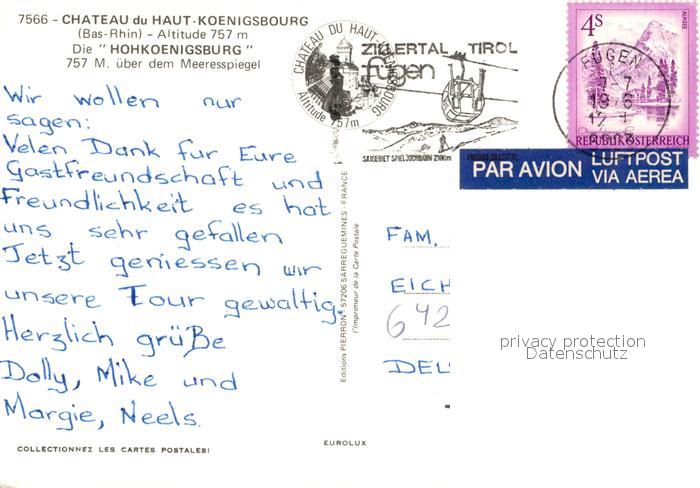 7566 - CHATEAU du HAUT-KOENIGSBOURG
(Bas-Rhin) - Altitude 757 m
Die "HOHKOENIGSBURG"
757 M. über dem Meeresspiegel
Wir wollen nur
sagen:
Velen Dank für Eure
Gastfreundschaft und
Freundlichkeit es hat
uns sehr gefallen
Jetzt geniessen wir
unsere Tour gewaltig.
Herzlich grüße
Dolly, Mike und
Margie, Neels.
COLLECTIONNEZ LES CARTES POSTALES!
CHATEAU DU HAUT-KOENIGSBOURG
Altitude 757m
ZILLERTAL TIROL
fügen
SKIGEBIET SPIELJOCHBAHN 2100m
FÜGEN
4S
ALMSEE
REPUBLIK ÖSTERREICH
PAR AVION
LUFTPOST
VIA AEREA
Editions PIERRON 57206 SARREGUEMINES - FRANCE
l'Imprimeur de la Carte Postale
FAM.
EICH
642
DEL
EUROLUX
privacy protection
Datenschutz